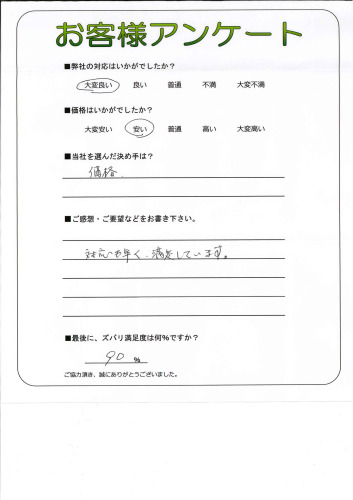 お客様アンケート
■弊社の対応はいかがでしたか？
大変良い 良い 普通 不満 大変不満
■価格はいかがでしたか？
大変安い 安い 普通 高い 大変高い
■当社を選んだ決め手は？
価格
■ご感想・ご要望などをお書き下さい。
対応も早く、満足しています。
■最後に、ズバリ満足度は何%ですか？
90 %
ご協力頂き、誠にありがとうございました。